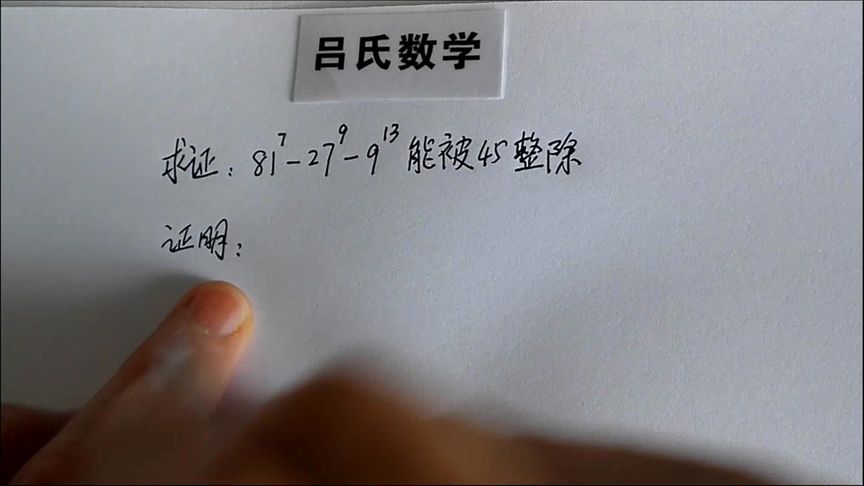 吕氏数学
求证：81⁷-27⁹-9¹³能被45整除
证明：